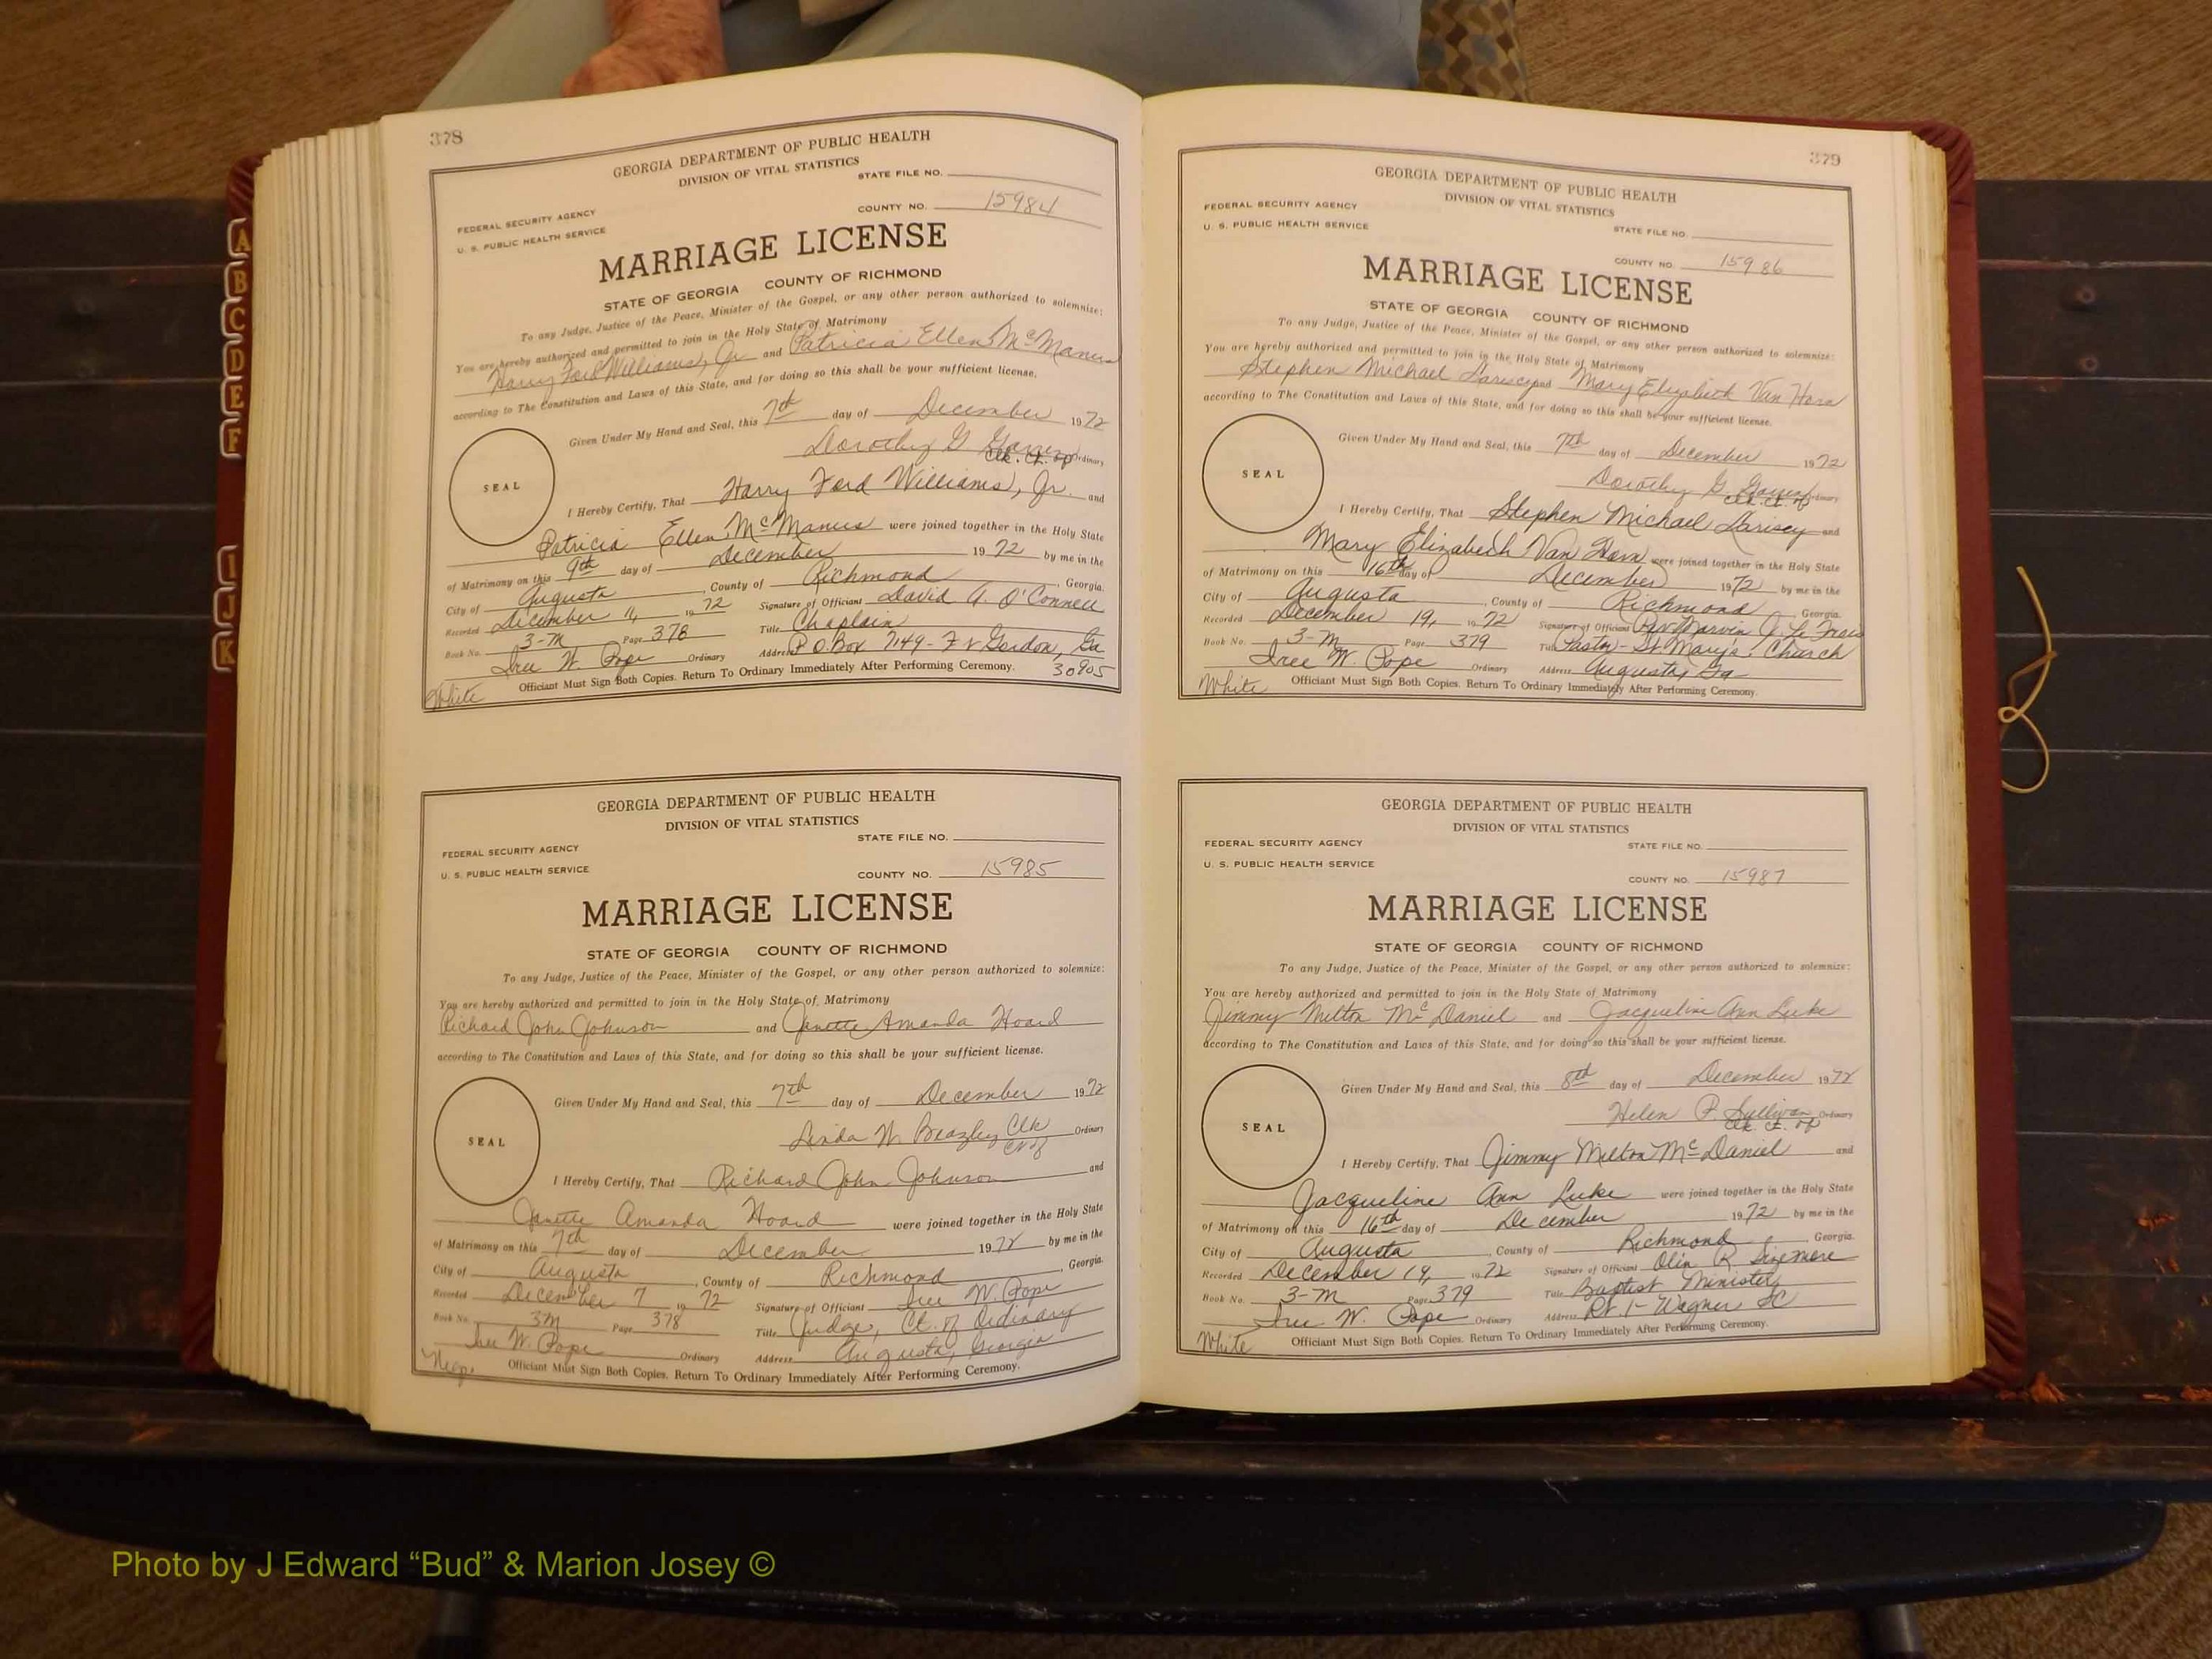 378
GEORGIA DEPARTMENT OF PUBLIC HEALTH
DIVISION OF VITAL STATISTICS
STATE FILE NO.
FEDERAL SECURITY AGENCY
COUNTY NO. 15984
U. S. PUBLIC HEALTH SERVICE
MARRIAGE LICENSE
STATE OF GEORGIA COUNTY OF RICHMOND
To any Judge, Justice of the Peace, Minister of the Gospel, or any other person authorized to solemnize:
You are hereby authorized and permitted to join in the Holy State of Matrimony
Harry Ford Williams, Jr. and Patricia Ellen McManus
according to The Constitution and Laws of this State, and for doing so this shall be your sufficient license.
Given Under My Hand and Seal, this 7th day of December 1972
Dorothy G. Ordinary
Clk. Ct. of
SEAL
I Hereby Certify, That Harry Ford Williams, Jr. and
Patricia Ellen McManus were joined together in the Holy State
of Matrimony on this 9th day of December 1972 by me in the
City of Augusta, County of Richmond, Georgia.
Recorded December 11, 1972 Signature of Officiant David A. O'Connell
Book No. 3-M Page 378 Title Chaplain
Iree W. Pope Ordinary Address P O Box 7149 - Ft Gordon, Ga
30905
Officiant Must Sign Both Copies. Return To Ordinary Immediately After Performing Ceremony.
White
GEORGIA DEPARTMENT OF PUBLIC HEALTH
DIVISION OF VITAL STATISTICS
STATE FILE NO.
FEDERAL SECURITY AGENCY
COUNTY NO. 15985
U. S. PUBLIC HEALTH SERVICE
MARRIAGE LICENSE
STATE OF GEORGIA COUNTY OF RICHMOND
To any Judge, Justice of the Peace, Minister of the Gospel, or any other person authorized to solemnize:
You are hereby authorized and permitted to join in the Holy State of Matrimony
Richard John Johnson and Janette Amanda Hoard
according to The Constitution and Laws of this State, and for doing so this shall be your sufficient license.
Given Under My Hand and Seal, this 7th day of December 1972
Linda W. Beazley Clk Ordinary
SEAL
I Hereby Certify, That Richard John Johnson and
Janette Amanda Hoard were joined together in the Holy State
of Matrimony on this 7th day of December 1972 by me in the
City of Augusta, County of Richmond, Georgia.
Recorded December 7 1972 Signature of Officiant Iree W. Pope
Book No. 3M Page 378 Title Judge, Ct. of Ordinary
Iree W. Pope Ordinary Address Augusta, Georgia
Officiant Must Sign Both Copies. Return To Ordinary Immediately After Performing Ceremony.
Neg.
379
GEORGIA DEPARTMENT OF PUBLIC HEALTH
DIVISION OF VITAL STATISTICS
FEDERAL SECURITY AGENCY
STATE FILE NO.
U. S. PUBLIC HEALTH SERVICE
COUNTY NO. 15986
MARRIAGE LICENSE
STATE OF GEORGIA COUNTY OF RICHMOND
To any Judge, Justice of the Peace, Minister of the Gospel, or any other person authorized to solemnize:
You are hereby authorized and permitted to join in the Holy State of Matrimony
Stephen Michael Lariscy and Mary Elizabeth Van Horn
according to The Constitution and Laws of this State, and for doing so this shall be your sufficient license.
Given Under My Hand and Seal, this 7th day of December 1972
Dorothy G. Ordinary
Clk. Ct. of
SEAL
I Hereby Certify, That Stephen Michael Lariscy and
Mary Elizabeth Van Horn were joined together in the Holy State
of Matrimony on this 16th day of December 1972 by me in the
City of Augusta, County of Richmond, Georgia.
Recorded December 19, 1972 Signature of Officiant Rev Marvin J. Le
Book No. 3-M Page 379 Title Pastor - St Mary's Church
Iree W. Pope Ordinary Address Augusta, Ga
Officiant Must Sign Both Copies. Return To Ordinary Immediately After Performing Ceremony.
White
GEORGIA DEPARTMENT OF PUBLIC HEALTH
DIVISION OF VITAL STATISTICS
FEDERAL SECURITY AGENCY
STATE FILE NO.
U. S. PUBLIC HEALTH SERVICE
COUNTY NO. 15987
MARRIAGE LICENSE
STATE OF GEORGIA COUNTY OF RICHMOND
To any Judge, Justice of the Peace, Minister of the Gospel, or any other person authorized to solemnize:
You are hereby authorized and permitted to join in the Holy State of Matrimony
Jimmy Milton McDaniel and Jacqueline Ann Luke
according to The Constitution and Laws of this State, and for doing so this shall be your sufficient license.
Given Under My Hand and Seal, this 8th day of December 1972
Helen P. Sullivan Ordinary
Clk. Ct. of
SEAL
I Hereby Certify, That Jimmy Milton McDaniel and
Jacqueline Ann Luke were joined together in the Holy State
of Matrimony on this 16th day of December 1972 by me in the
City of Augusta, County of Richmond, Georgia.
Recorded December 19, 1972 Signature of Officiant Olin R. Sizemore
Book No. 3-M Page 379 Title Baptist Minister
Iree W. Pope Ordinary Address Rt. 1 - Wagner SC
Officiant Must Sign Both Copies. Return To Ordinary Immediately After Performing Ceremony.
White
A
B
C
D
E
F
I
J
K
Photo by J Edward “Bud” & Marion Josey ©